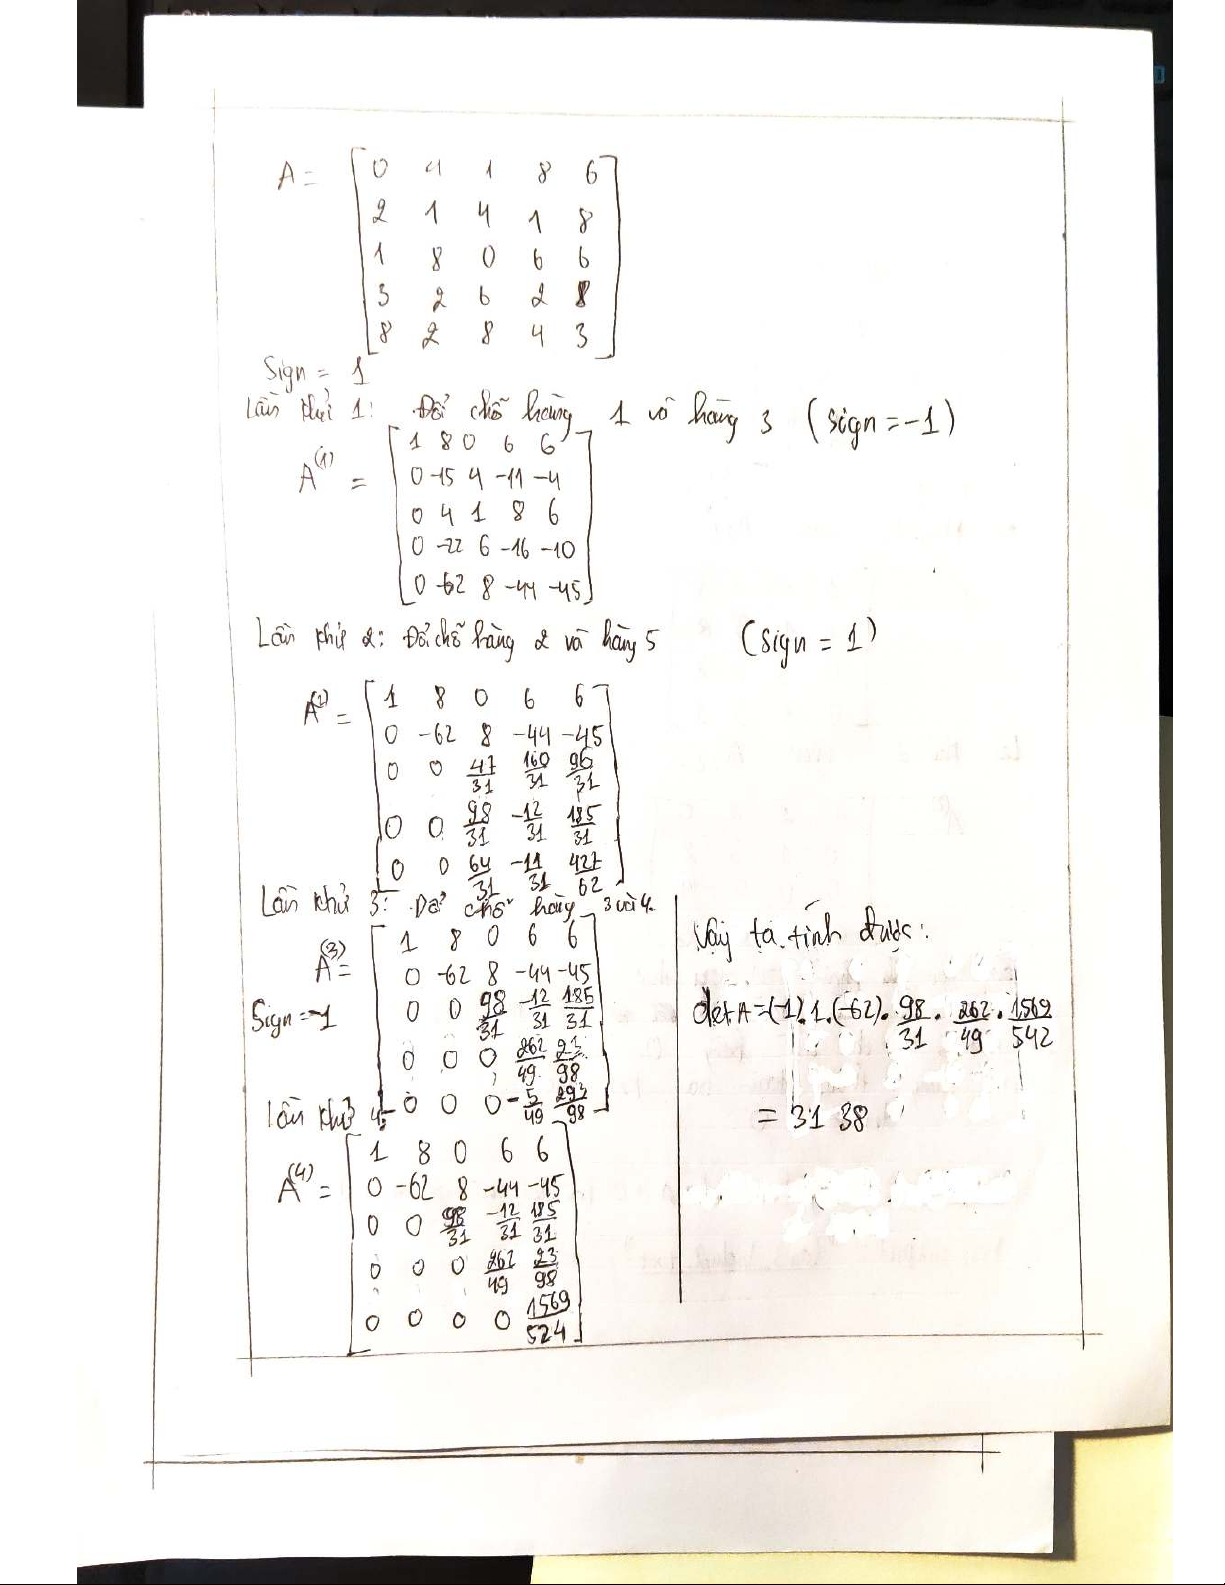 A = [ 0 4 1 8 6
2 1 4 1 8
1 8 0 6 6
3 2 6 2 8
8 2 8 4 3 ]
Sign = 1
Lần khử 1: Đổi chỗ hàng 1 và hàng 3 (sign = -1)
A^(1) = [ 1 8 0 6 6
0 -15 4 -11 -4
0 4 1 8 6
0 -22 6 -16 -10
0 -62 8 -44 -45 ]
Lần khử 2: Đổi chỗ hàng 2 và hàng 5 (Sign = 1)
A^(2) = [ 1 8 0 6 6
0 -62 8 -44 -45
0 0 47/31 160/31 96/31
0 0 98/31 -12/31 185/31
0 0 64/31 -11/31 427/62 ]
Lần khử 3: Đổi chỗ hàng 3 và 4
A^(3) = [ 1 8 0 6 6
0 -62 8 -44 -45
Sign = -1
0 0 98/31 -12/31 185/31
0 0 0 262/49 23/98
0 0 0 -5/49 293/98 ]
Lần khử 4:
A^(4) = [ 1 8 0 6 6
0 -62 8 -44 -45
0 0 98/31 -12/31 185/31
0 0 0 262/49 23/98
0 0 0 0 1569/524 ]
Vậy ta tính được:
det A = (-1).1.(-62). 98/31 . 262/49 . 1569/542
= 3138